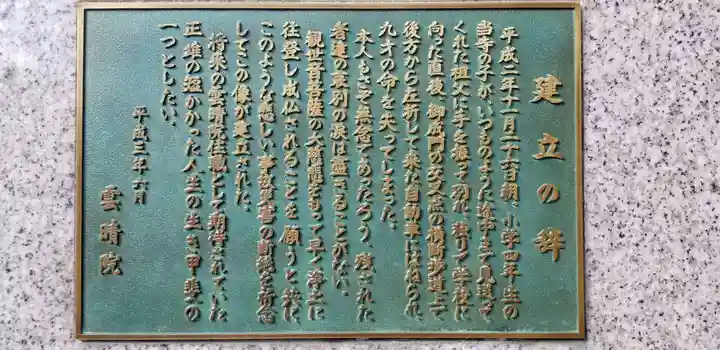 建立の辞
平成二年十一月二十六日朝、小学四年生の
当寺の子が、いつものように途中まで見送って
くれた祖父に手を振って別れ、独り学校に
向った直後、御成門の交叉点の横断歩道上で
後方から左折して来た自動車にはねられ
九才の命を失ってしまった。
本人もさぞ無念であったろう、残された
者達の哀別の涙は尽きることがない。
観世音菩薩の大慈悲をもって早く浄土に
往登し成仏されることを願うと共に
このような悲しい事故の断絶を祈念
してこの像が建立された。
将来の雲晴院住職として期待されていた
正雄の短かかった人生の生き甲斐の
一つとしたい。
平成三年六月
雲晴院